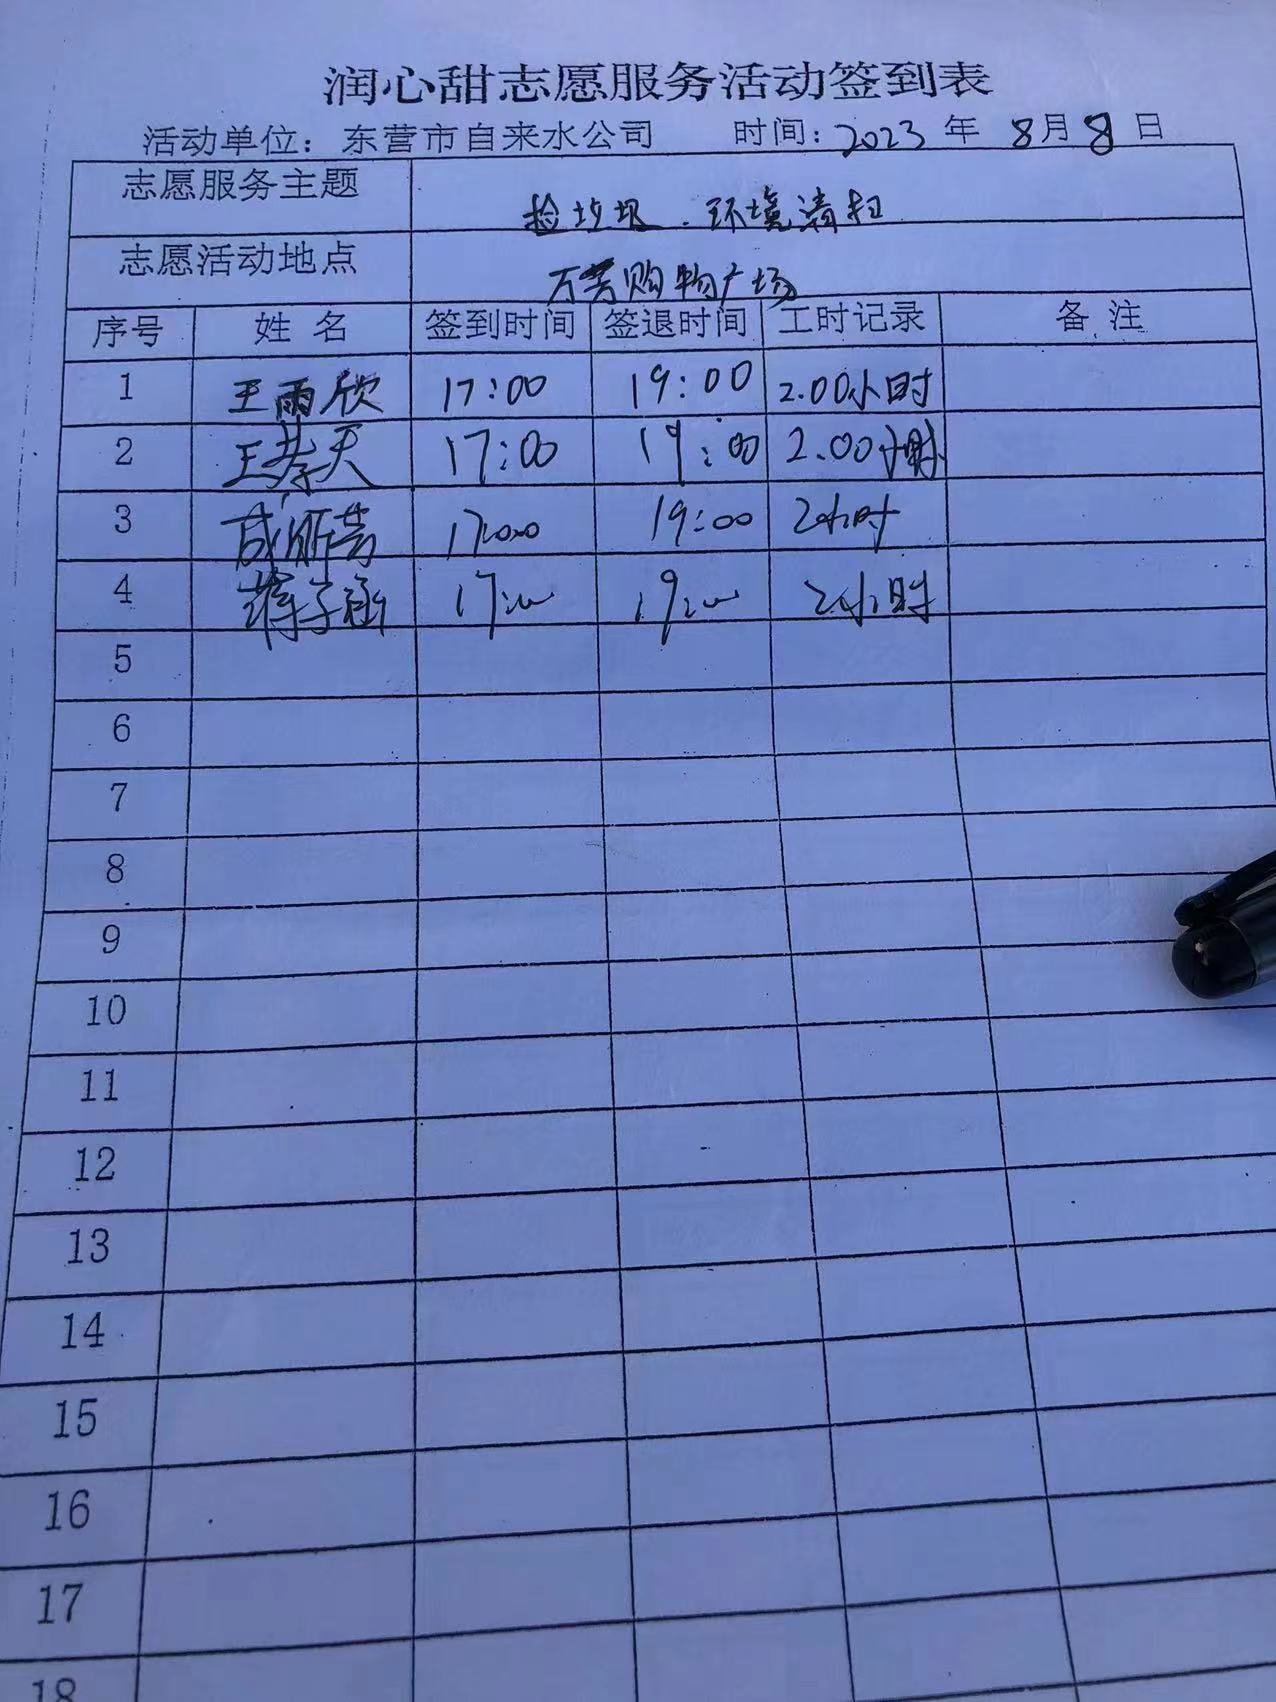 润心甜志愿服务活动签到表
活动单位：东营市自来水公司 时间：2023 年 8月 8 日
志愿服务主题 捡垃圾．环境清扫
志愿活动地点 万芳购物广场
序号 姓名 签到时间 签退时间 工时记录 备注
1 王雨欣 17:00 19:00 2.00小时
2 王孝天 17:00 19:00 2.00小时
3 17:00 19:00 2小时
4 蒋子涵 17:00 19:00 2小时
5
6
7
8
9
10
11
12
13
14
15
16
17
18